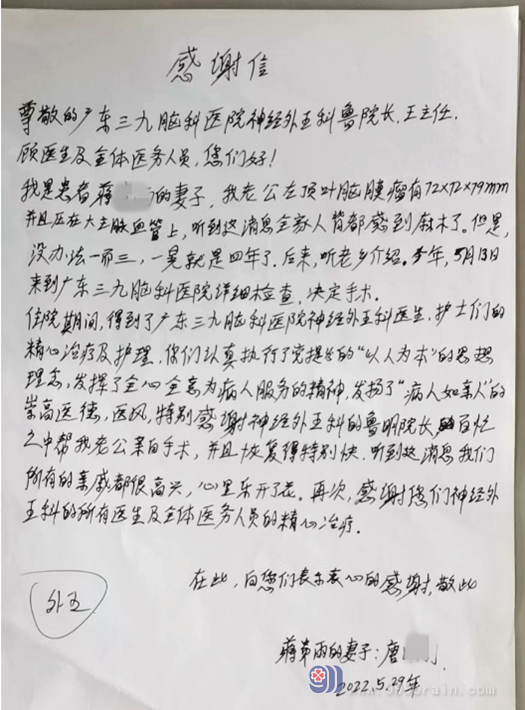 感谢信
尊敬的广东三九脑科医院神经外五科鲁院长、王主任、
顾医生及全体医务人员,您们好!
我是患者蒋 的妻子,我老公左顶叶脑膜瘤有72×72×79mm
并且压在大主脉血管上,听到这消息全家人背都感到麻木了。但是,
没办法一而三,一晃就是四年了。后来,听老乡介绍。今年,5月13日
来到广东三九脑科医院详细检查,决定手术。
住院期间,得到了广东三九脑科医院神经外五科医生、护士们的
精心治疗及护理。你们认真执行了党提出的“以人为本”的思想
理念,发挥了全心全意为病人服务的精神,发扬了“病人如亲人”的
崇高医德,医风,特别感谢神经外五科的鲁明院长,百忙
之中帮我老公亲自手术,并且恢复得特别快。听到这消息我们
所有的亲戚都很高兴,心里乐开了花。再次,感谢您们神经外
五科的所有医生及全体医务人员的精心治疗。
在此,向您们表示衷心的感谢,敬此
外五
蒋 的妻子:唐
2022.5.29年